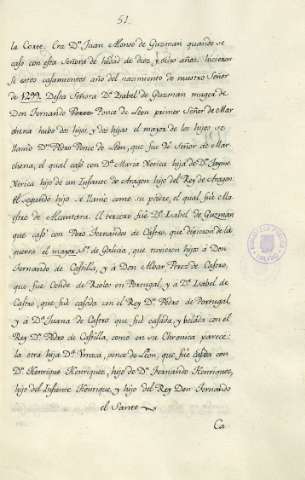 51.
la Corte. Era Dn. Juan Alonso de Guzman quando se
casó con esta Señora de hedad de diez, y ocho años: hicieron
se estos casamientos año del nacimiento de nuestro Señor
de 1299. Desta Señora Da. Isabel de Guzman muger de
Don Fernando Perez Ponce de León primer Señor de Mar
chena hubo dos hijos, y dos hijas el mayor de los hijos se
llamó Dn. Pedro Ponce de León, que fue Sr. de Mar
chena, el qual casó con Da. Maria Xerica hija de Dn. Jayme
Xerica hijo de un Infante de Aragon hijo del Rey de Aragon
el segundo hijo se llamó como su padre, el qual fue Ma
estre de Alcantara. El tercero fue Da. Isabel de Guzman
que casó con Pero Fernandez de Castro, que dixeron de la
guerra el mayor Sr. de Galicia, que tuvieron hijos á Don
Fernando de Castilla, y á Don Albar Perez de Castro,
que fue Conde de Rolos en Portugal, y á Da. Isabel de
Castro, que fue casada con el Rey Dn. Pedro de Portugal,
y á Da. Juana de Castro que fue casada, y belada con el
Rey Dn. Pedro de Castilla, como en su Chronica parece:
la otra hija Da. Urraca ponce de León, que fue casada con
Dn. Henrique Henriquez, hijo de Dn. Fernando Henriquez,
hijo del Infante Henrique, y hijo del Rey Don Fernando
el Santo
Ca